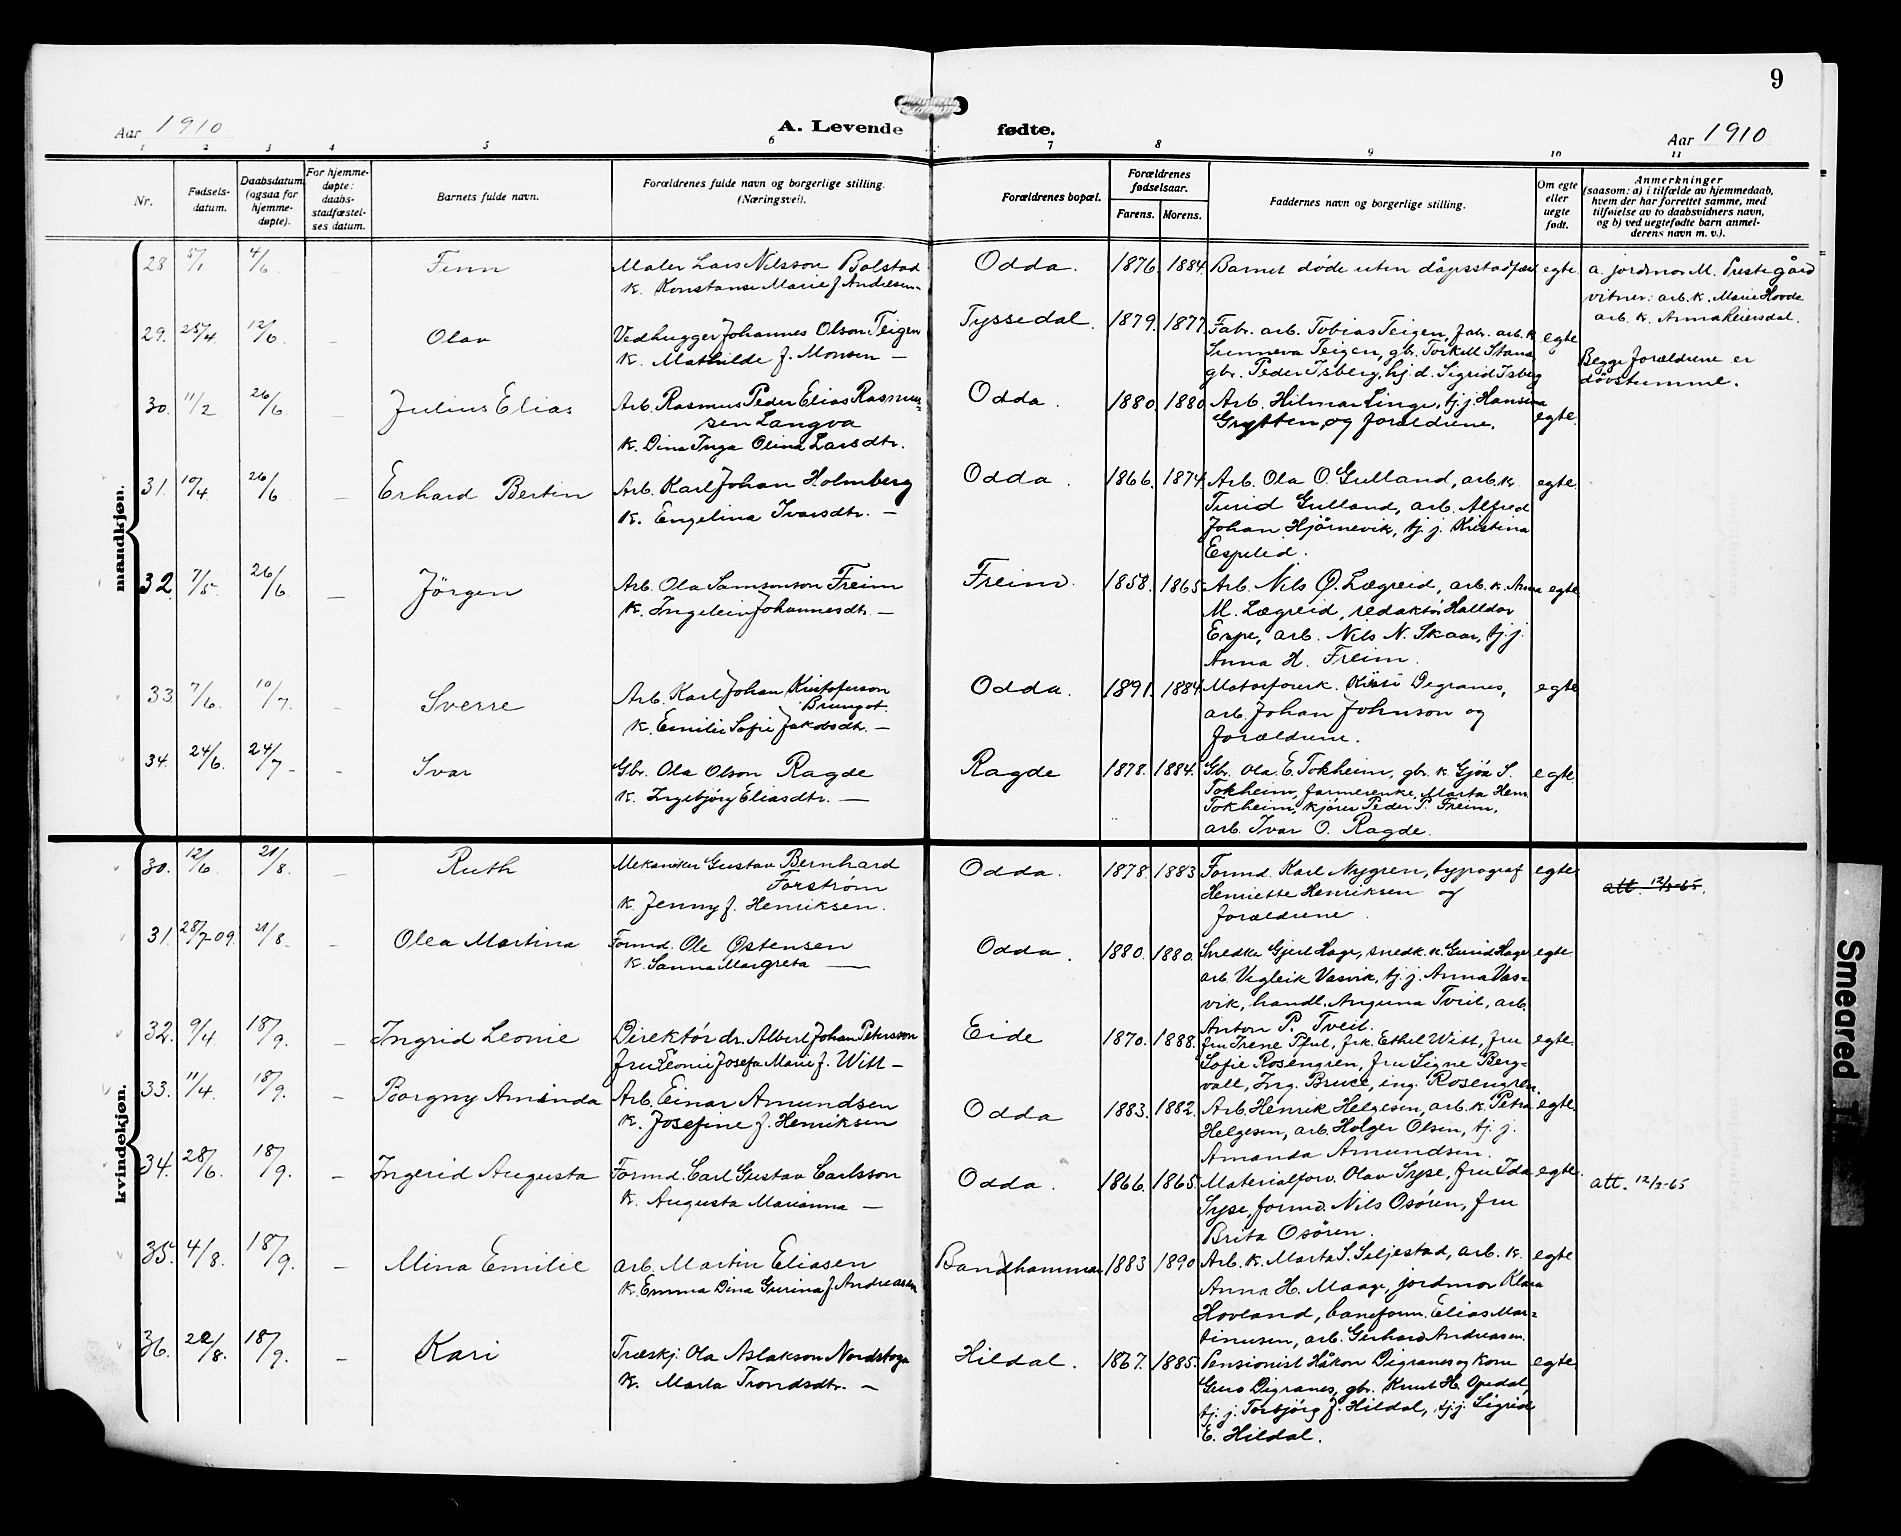 9
Aar 1910
A. Levende fødte.
Aar 1910
1 2 3 4 5 6 7 8 9 10 11
Nr.
Fødsels-
datum.
Daabsdatum
(ogsaa for
hjemme-
døpte).
For hjemme-
døpte:
daabs-
stadfæstel-
ses datum.
Barnets fulde navn.
Forældrenes fulde navn og borgerlige stilling.
(Næringsvei).
Forældrenes bopæl.
Forældrenes
fødselsaar.
Farens. Morens.
Faddernes navn og borgerlige stilling.
Om egte
eller
uegte
født.
Anmerkninger
(saasom: a) i tilfælde av hjemmedaab,
hvem der har forrettet samme, med
tilføielse av to daabsvidners navn,
og b) ved uegtefødte barn anmel-
derens navn m. v.).
mandkjøn.
28 5/1 4/6 – Finn
Maler Lars Nilsson Bolstad
k. Konstanse Marie f. Andresen –
Odda. 1876. 1884.
Barnet døde uten dåpsstadfæst egte
a. jordmor M. Prestegård
vitner: arb. k. Marie Hovde
arb. k. Anna Reiersdal.
29. 25/4 12/6 – Olav
Vedhugger Johannes Olson Teigen
k. Mathilde f. Monsen –
Tyssedal. 1879. 1877.
Fabr. arb. Tobias Teigen, fabr. arb. k.
Sunneva Teigen, gbr. Torkell Stana
gbr. Peder Isberg, hj. d. Sigrid Isberg
egte
Begge forældrene er
døvstumme.
30. 11/2 26/6 – Julius Elias
Arb. Rasmus Peder Elias Rasmus-
sen Langva
k. Dina Inga Olina Larsdtr.
Odda. 1880. 1880.
Arb. Hilmar Linge, tj. j. Hansina
Grytten, og forældrene.
egte.
31. 10/4. 26/6 – Erhard Bertin
Arb. Karl Johan Holmberg
k. Engelina Ivarsdtr. –
Odda. 1866. 1874.
Arb. Ola O. Gulland, arb. k.
Turid Gulland, arb. Alfred
Johan Hjørnevik, tj. j. Kristina
Espelid.
egte.
32. 7/5. 26/6 – Jörgen
Arb. Ola Samsonson Freim
k. Ingeleiv Johannesdtr. –
Freim. 1858. 1865.
Arb. Nils O. Lægreid, arb. k. Anna
M. Lægreid, redaktör Halldor
Espe, arb. Nils N. Skaar, tj. j.
Anna H. Freim.
egte.
33 7/6. 10/7. – Sverre
Arb. Karl Johan Kristoferson
Brungot.
k. Emilie Sofie Jakobsdtr. –
Odda. 1891. 1884.
Degranes,
arb. Johan Johnson og
forældrene.
egte
34. 24/6. 24/7 – – Ivar
Gbr. Ola Olson Ragde
k. Ingebjörg Eliasdtr. –
Ragde 1878. 1884.
Gbr. Ola E. Tokheim, gbr. k. Gjöa S.
Tokheim, farmerenke Marta Henr.
Tokheim, kjörer Peder P. Freim,
arb. Ivar O. Ragde.
egte.
kvindekjøn.
30. 12/6 21/8. – Ruth
Mekaniker Gustav Bernhard
Forström
k. Jenny f. Henriksen.
Odda. 1878. 1883
Formd. Karl Nygren, typograf
Henriette Henriksen og
forældrene.
egte.
att. 12/3-65.
31. 28/7-09. 21/8. – Olea Martina
Formd. Ole Ostensen
k. Sanna Margreta –
Odda. 1880. 1880.
Snedker Gjert Hage, snedk. k. Gurid Hage
arb. Vegleik Vasvik, tj. j. Anna Vas-
vik, handl. Angunna Tveit, arb.
Anton P. Tveit.
egte.
32. 9/4 18/9. – Ingrid Leonie
Direktör dr. Albert Johan Petersson
fru Leonie Josefa Marie f. Witt –
Eide 1870. 1888.
fru Irene Pful, frk. Ethel Witt, fru
Sofie Rosengren, fru Signe Berg-
vall, Ing. Bruce, ing. Rosengren.
egte.
33. 11/4. 18/9 – Borgny Aminda
Arb. Einar Amundsen
k. Josefine f. Henriksen
Odda 1883. 1882.
Arb. Henrik Helgesen, arb. k. Petra
Helgesen, arb. Holger Olsen, tj. j.
Amanda Amundsen.
egte.
34. 28/6. 18/9. – Ingerid Augusta
Formd. Carl Gustav Carlsson
k. Augusta Marianna –
Odda. 1866. 1865.
Materialforv. Olav Syse, fru Ida
Syse, formd. Nils Osören, fru
Brita Osören.
egte.
att. 12/3-65
35. 4/8. 18/9. – Mina Emilie
arb. Martin Eliasen
k. Emma Dina Gurina f. Andreasen
Bandhammar 1883 1890
Arb. k. Marta S. Seljestad, arb. k.
Anna H. Maage, jordmor Klara
Hovland, baneform. Elias Mar-
tinusen, arb. Gerhard Andreasen.
egte
36. 20/8. 18/9. – Kari
Træskj. Ola Aslakson Nordstoga
k. Marta Trondsdtr. –
Hildal. 1867. 1885.
Pensionist Håkon Digranes og kone
Guro Digranes, gbr. Knut H. Opedal,
tj. j. Torbjörg J. Hildal, tj. j. Sigrid
E. Hildal.
egte
Smeared